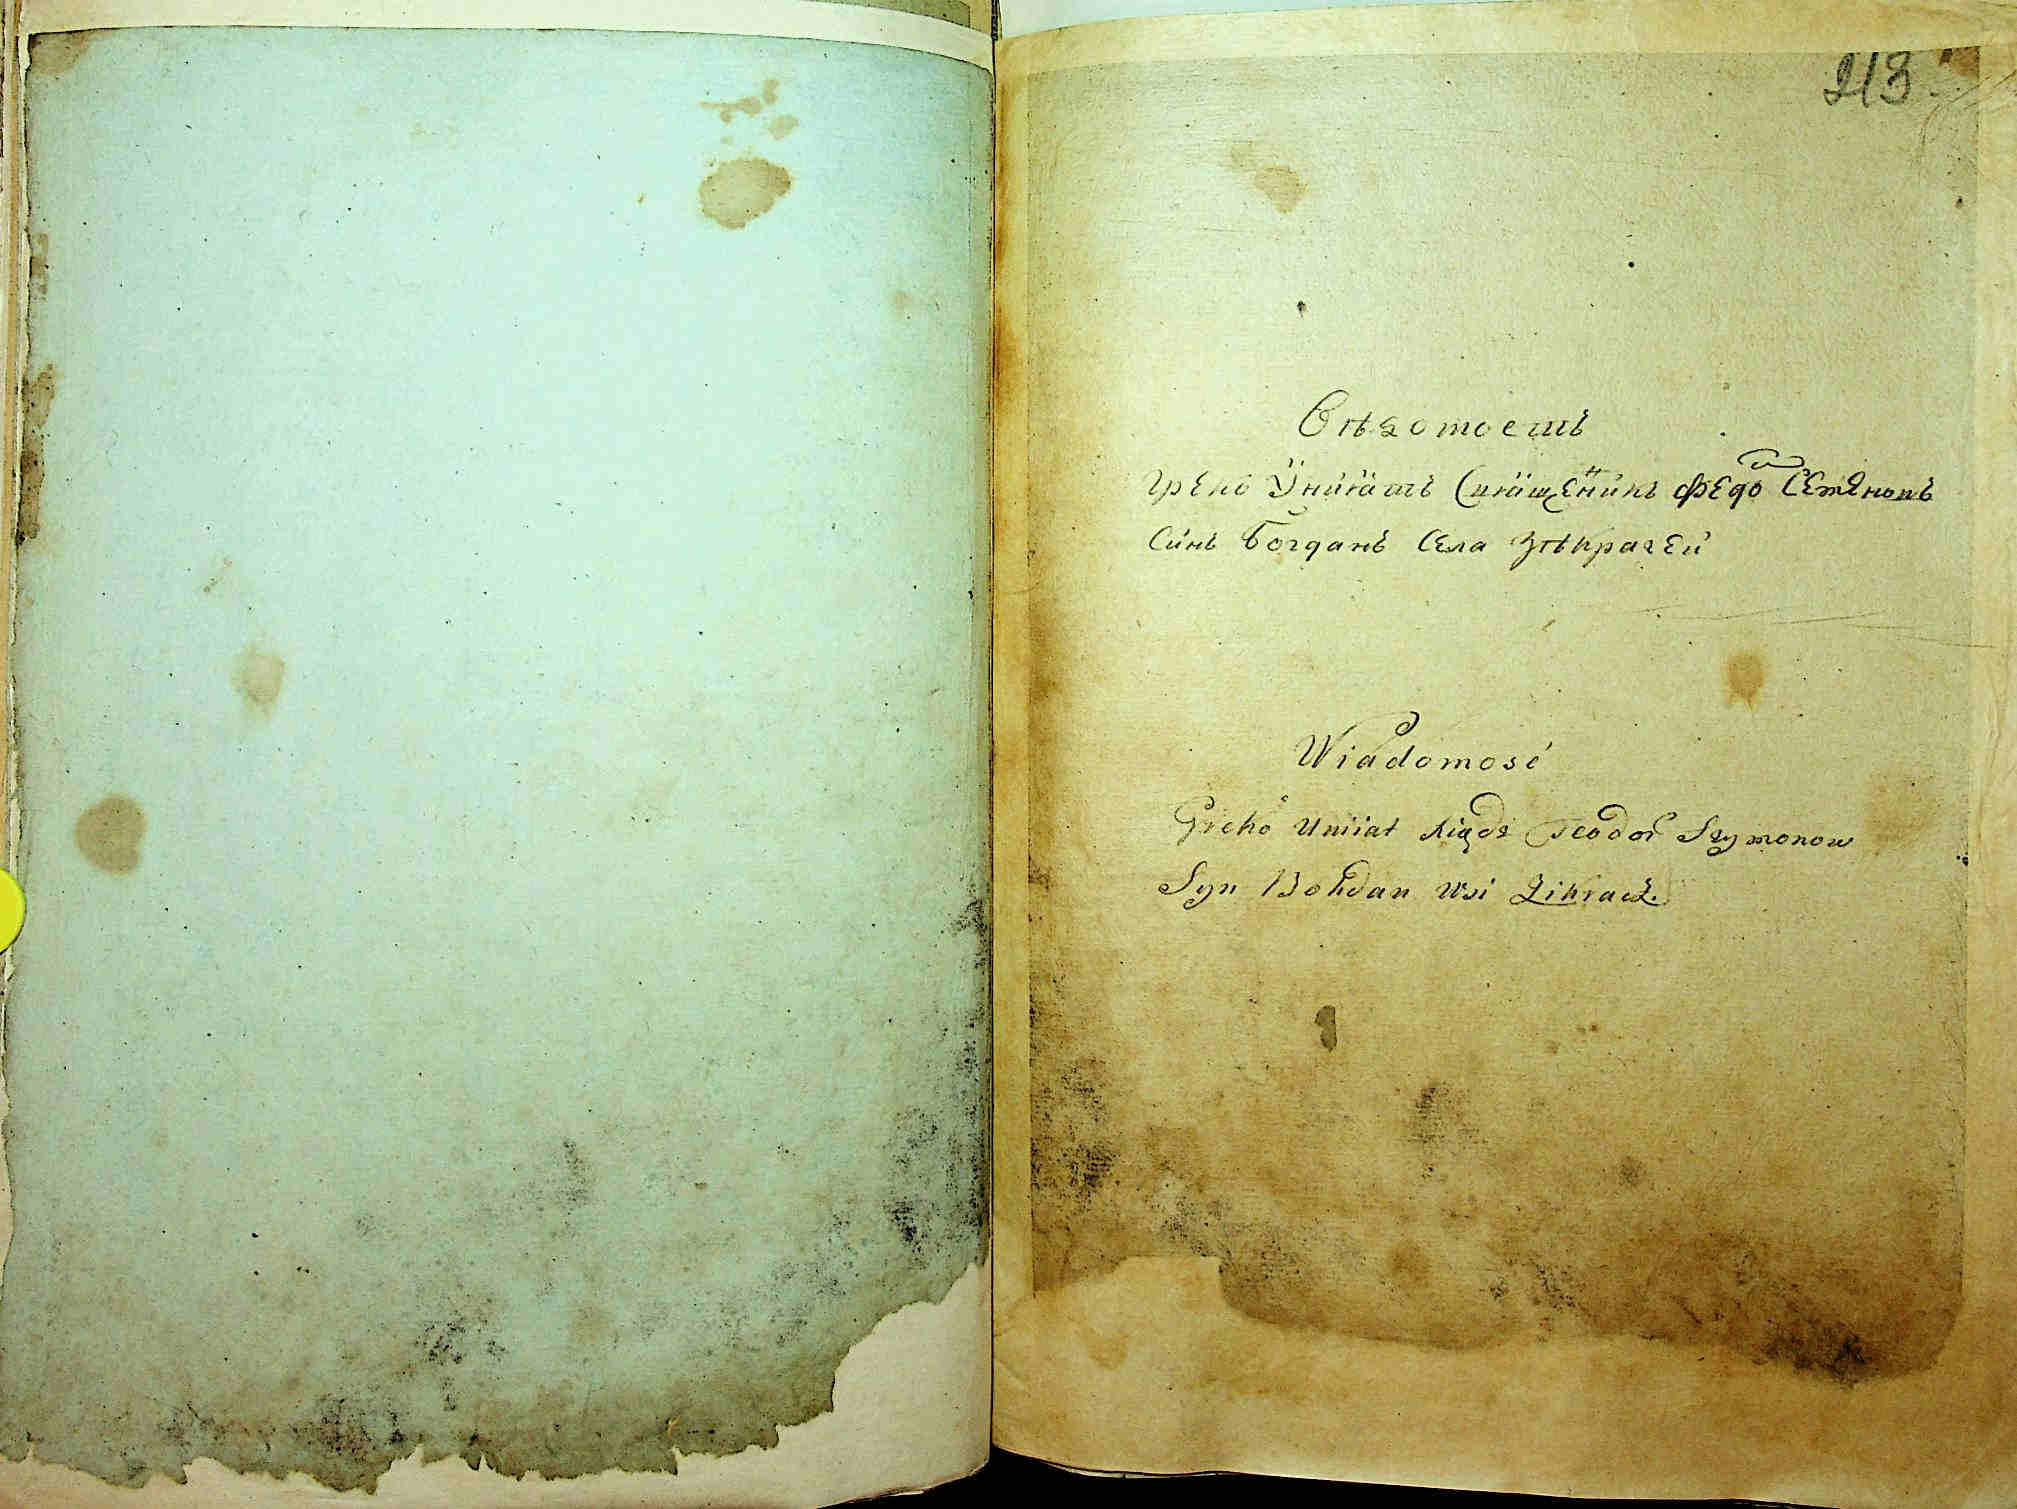 213
Свѣдомость
Греко Униятъ Священикъ Федоръ Семяновъ
Синъ Богданъ Села Зѣкрачей
Wiadomość
Greko Uniiat Xiądz Teodor Szymonow
Syn Bohdan Wsi Zikracz.